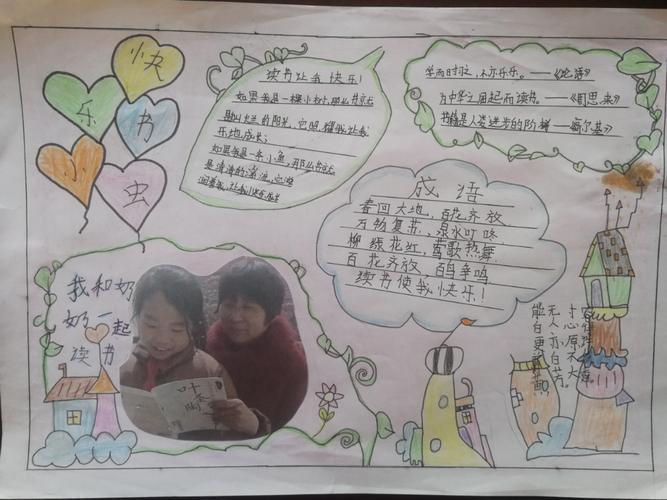 快
乐
书
小
虫
读书让我快乐!
如果我是一棵小树,那么书就
是灿烂的阳光,它照耀我,让我
乐地成长;
如果我是一条小鱼,那么书就
是清清的溪流,
学而时习之,不亦乐乎。——《论语》
为中华之崛起而读书。——《周恩来》
书籍是人类进步的阶梯——高尔基》
成语
春回大地、百花齐放、
万物复苏、泉水叮咚、
柳绿花红,莺歌热舞、
百花齐放,百鸟争鸣、
读书使我快乐!
我和奶
奶一起
读书
叶圣陶
寸心原不大,
无人亦自芳。